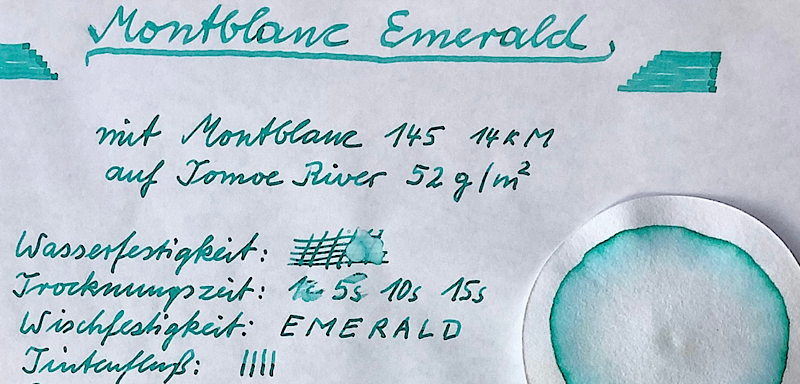 Montblanc Emerald
mit Montblanc 145 14K M
auf Tomoe River 52 g/m²
Wasserfestigkeit:
Trocknungszeit: 1s 5s 10s 15s
Wischfestigkeit: EMERALD
Tintenfluß: ||||